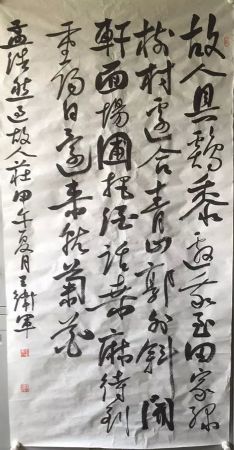 故人具鷄黍邀我至田家綠
樹村邊合青山郭外斜開
軒面場圃把酒話桑麻待到
重陽日還來就菊花
孟浩然過故人莊甲午夏月王衛軍